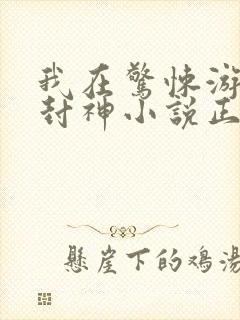 我在驚悚游
封神小説正
懸崖下的鸡湯